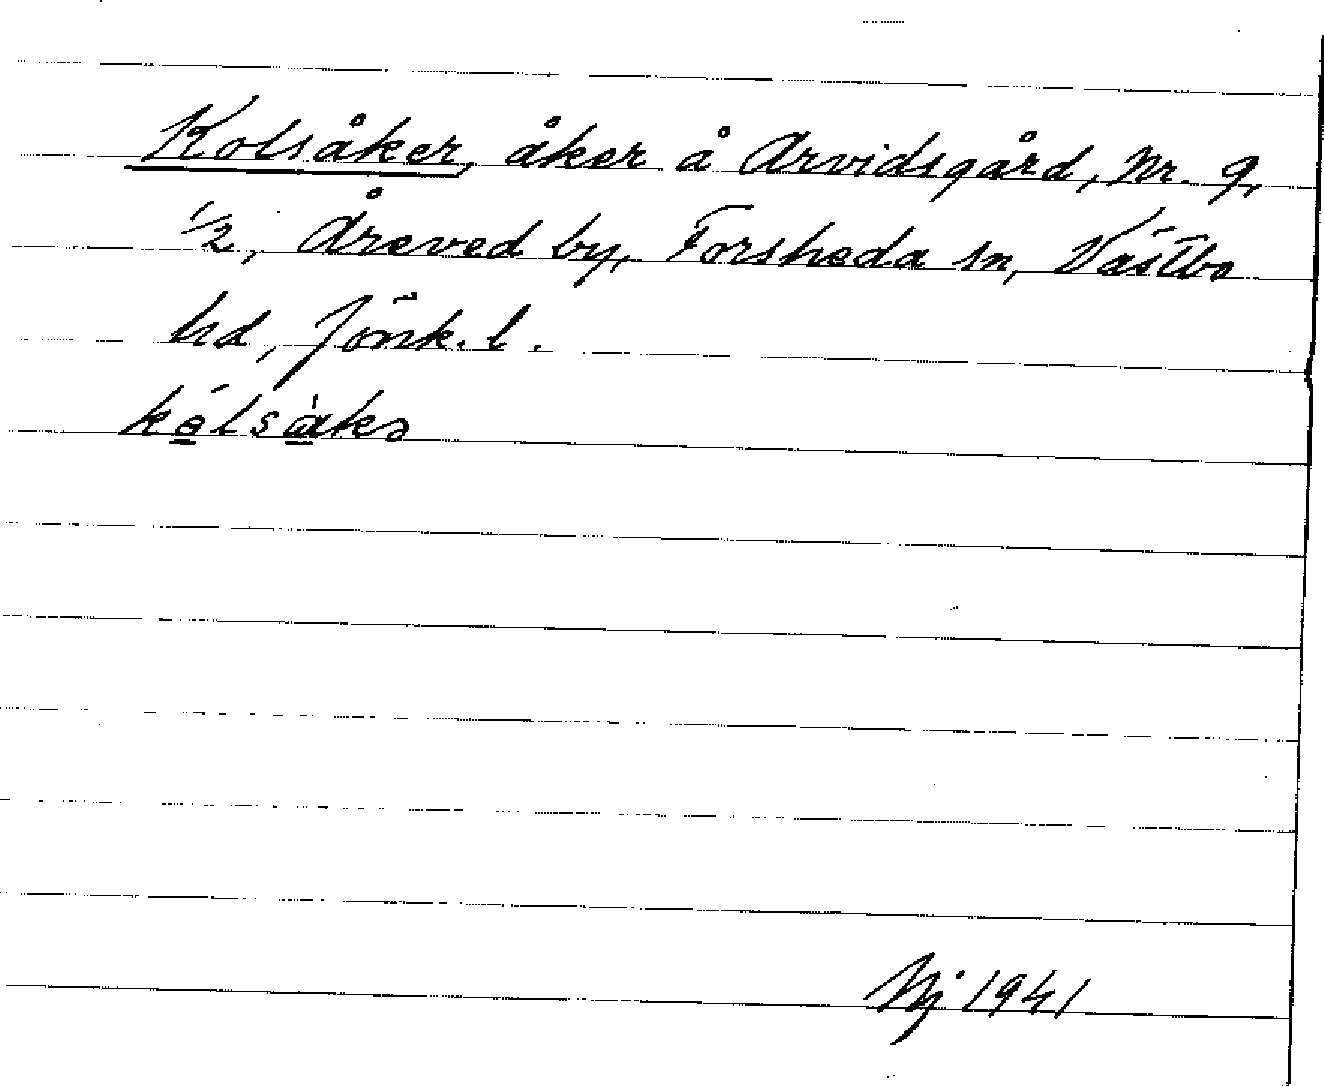 Kolsåker, åker å Arvidsgård, Nr. 9,
1/2, Åreved by, Forsheda sn, Västbo
hd, Jönk. l.
kólsàkə
Nj 1941